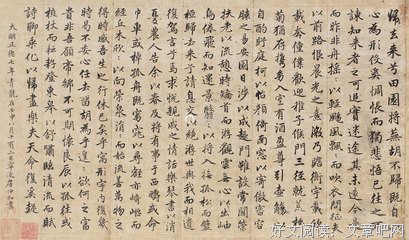 歸去來兮田園將蕪胡不歸既自以
心為形役奚惆悵而獨悲悟已往之不
諫知來者之可追實迷途其未遠覺今是
而昨非舟搖搖以輕颺風飄飄而吹衣問征夫
以前路恨晨光之熹微乃瞻衡宇載欣
載奔僮僕歡迎稚子候門三徑就荒松
菊猶存攜幼入室有酒盈尊引壺觴以
自酌眄庭柯以怡顏倚南窗以寄傲審容
膝之易安園日涉以成趣門雖設而常關策
扶老以流憩時矯首而遐觀雲無心以出岫
鳥倦飛而知還景翳翳以將入撫孤松而盤
桓歸去來兮請息交以絕游世與我而相違
復駕言兮焉求悅親戚之情話樂琴書以消
憂農人告余以春及將有事于西疇或命
巾車或棹孤舟既窈窕以尋壑亦崎嶇而
經丘木欣欣以向榮泉涓涓而始流善萬物之
得時感吾生之行休已矣乎寓形宇內復幾
時曷不委心任去留胡為乎遑遑欲何之富
貴非吾願帝鄉不可期懷良辰以孤往或
植杖而耘耔登東皋以舒嘯臨清流而賦
詩聊乘化以歸盡樂夫天命復奚疑
大明正德七年青龍在壬申八月